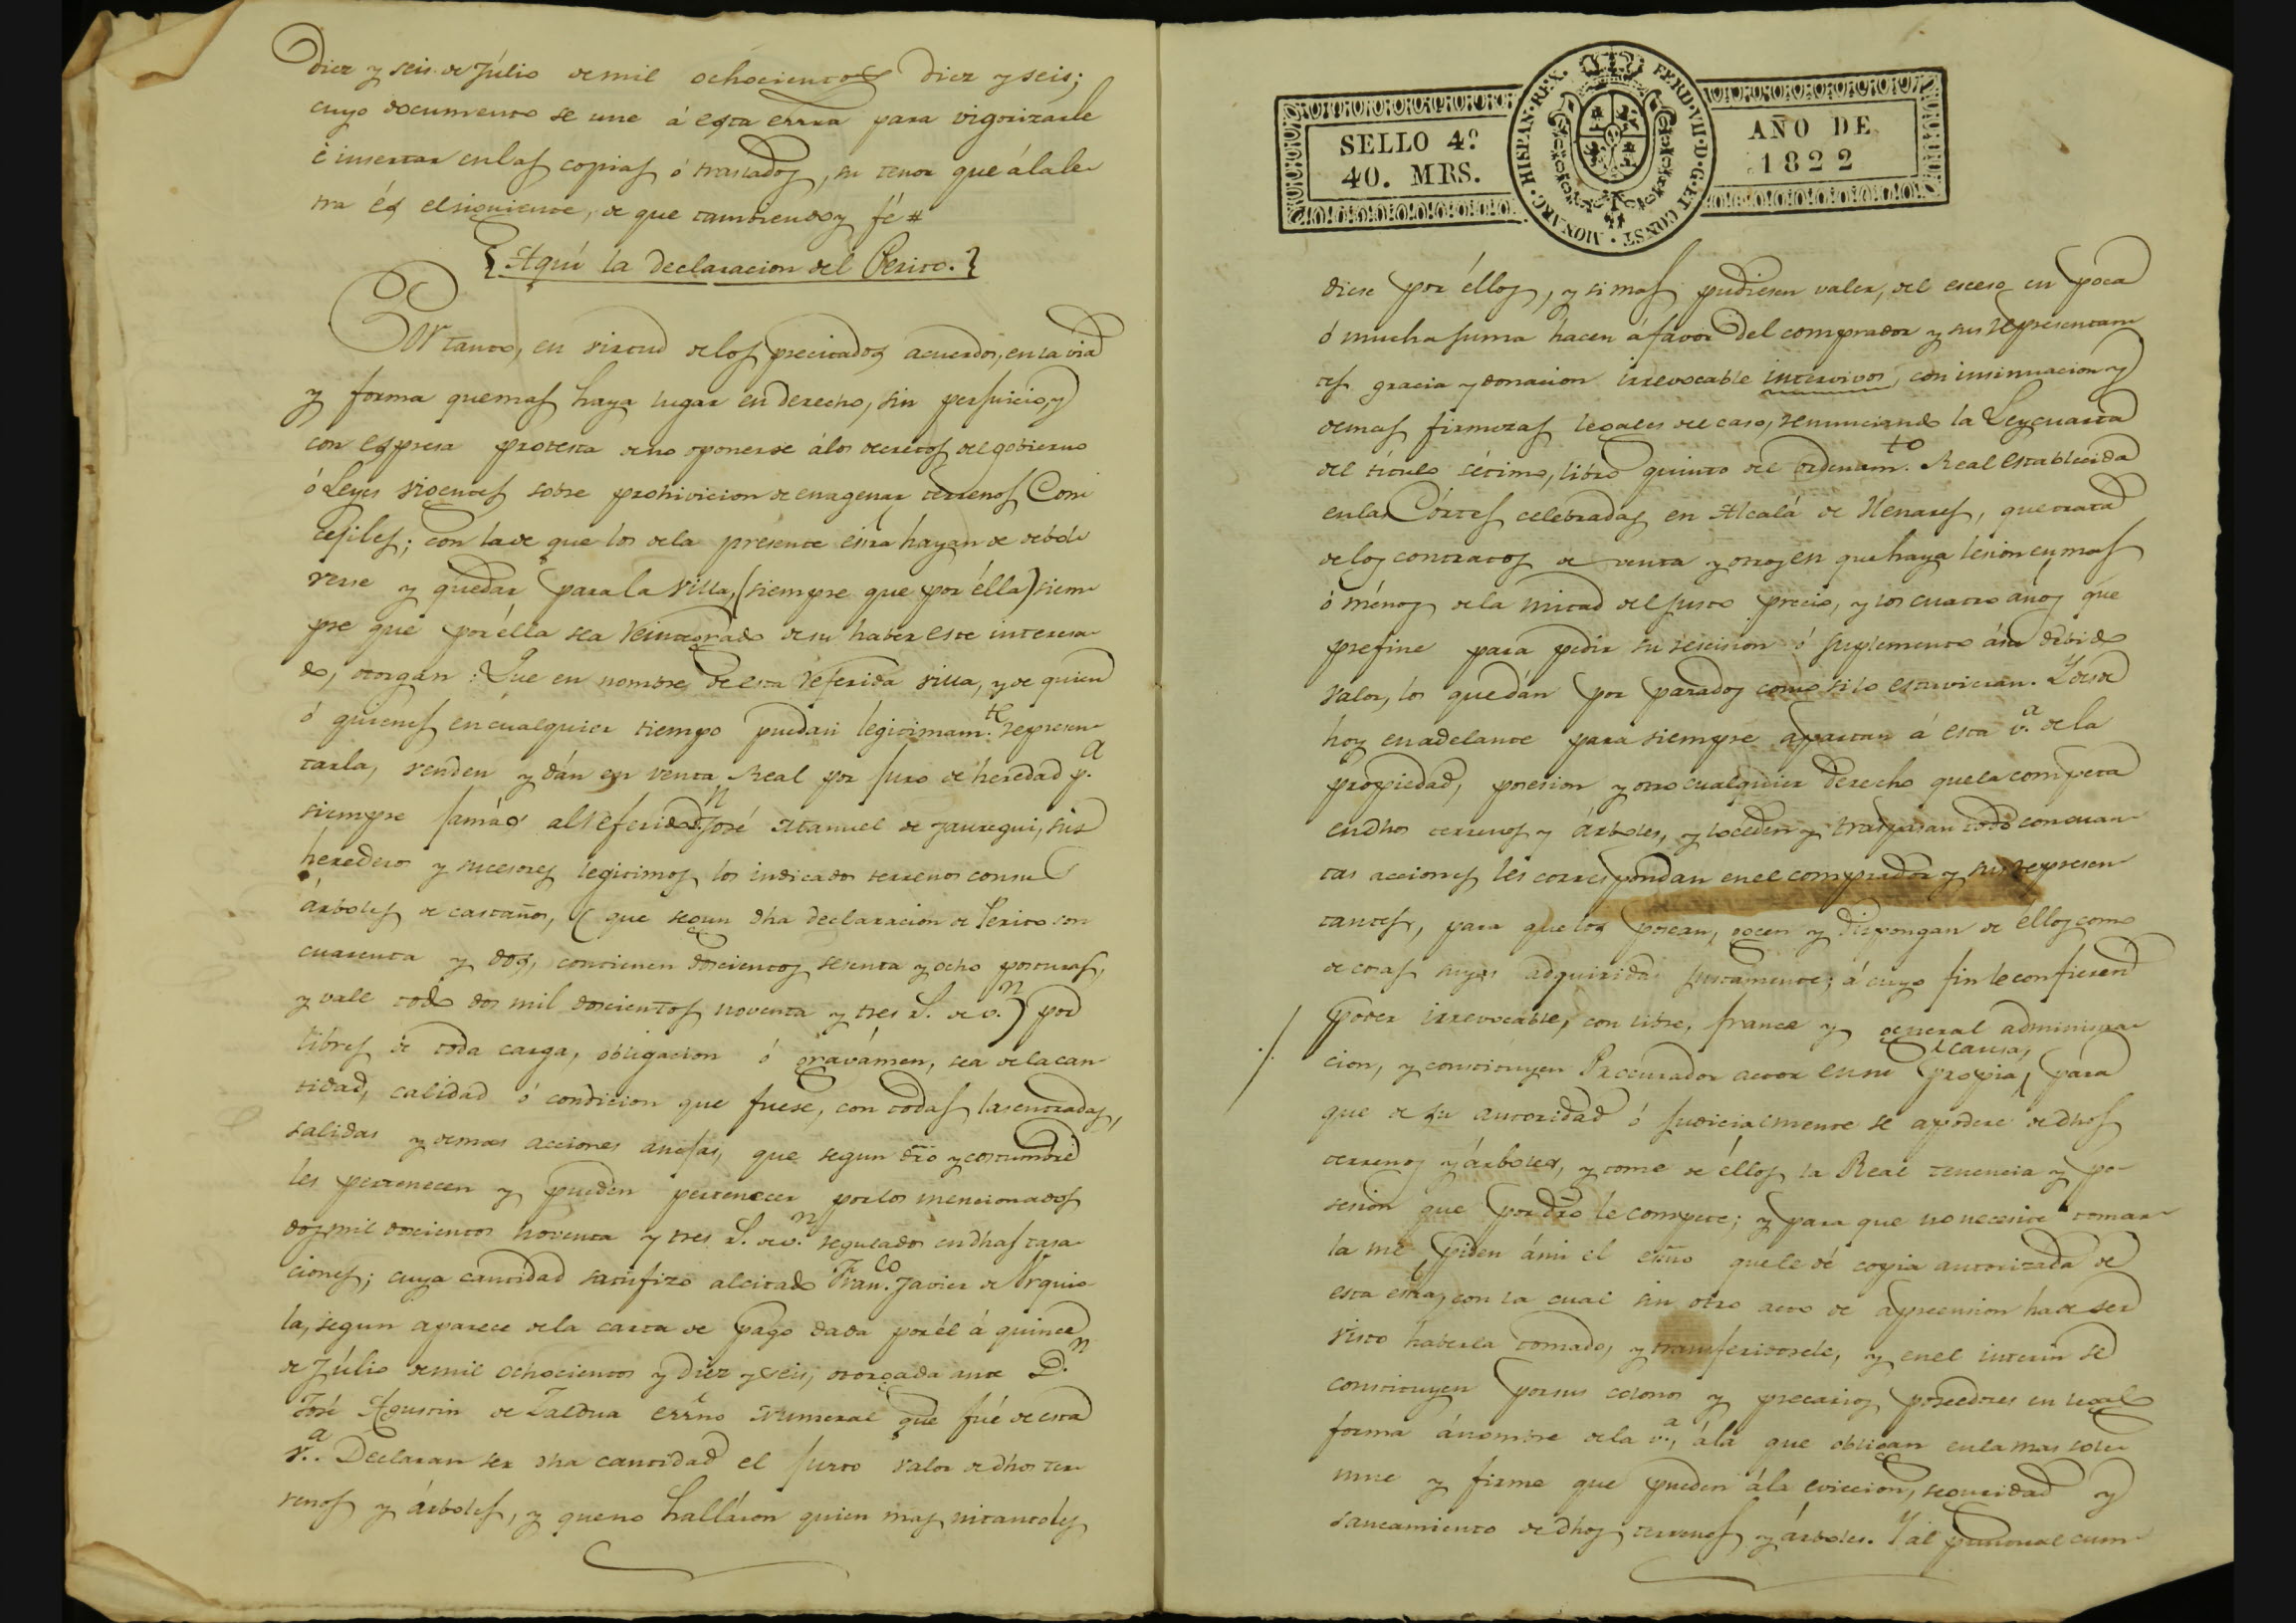 diez y seis de Júlio de mil ochocientos diez y seis;
cuyo documento se une á esta essra para vigorizarle
é insertar en las copias ó traslados, su tenor que á la le-
tra és el siguiente, de que tambien doy fé #
{Aqui la declaracion del Perito.}
Por tanto, en virtud de los precitados acuerdos, en la via
y forma que mas haya lugar en derecho, sin perjuicio, y
con espresa protesta de no oponerse á los decretos del gobierno
ó Leyes vigentes sobre prohivicion de enagenar terrenos Con-
cejiles; con la de que los de la presente essra hayan de debol-
verse y quedar para la villa, (siempre que por élla) siem-
pre que por élla sea reintegrado de su haber este interesa-
do, otorgan: Que en nombre de esta referida villa, y de quien
ó quienes en cualquier tiempo puedan legitimam.te represen-
tarla, venden y dán en venta Real por juro de heredad p.a
siempre jamás al referido D.n José Manuel de Jauregui, sus
herederos y sucesores legitimos, los indicados terrenos con su
árboles de castaños, (que segun dha declaracion de Perito son
cuarenta y dos, contienen doscientos sesenta y ocho posturas,
y vale todo dos mil doscientos noventa y tres R. de v.n) por
libres de toda carga, obligacion ó gravámen, sea de la can-
tidad, calidad ó condicion que fuese, con todas las entradas,
salidas y demas acciones anejas, que segun dro y costumbre
les pertenecen y pueden pertenecer por los mencionados
dos mil doscientos noventa y tres R. de v.n regulados en dhas tasa-
ciones; cuya cantidad satisfizo al citado Fran.co Javier de Urquio-
la, segun aparece de la carta de pago dada por él á quince
de Júlio de mil ochocientos y diez y seis, otorgada ante D.n
José Agustin de Zaldua essno Numeral que fué de esta
v.a. Declaran ser dha cantidad el justo valor de dhos ter-
renos y árboles, y que no halláron quien mas ni tanto les
SELLO 4.º
40. MRS.
HISPAN·REX. FERD·VII·D·G·ET CONST·MONARC·
AÑO DE
1822
diese por éllos, y si mas pudiesen valer, del esceso en poca
ó mucha suma hacen á favor del comprador y sus representan-
tes gracia y donacion irrevocable intervivos, con insinuacion y
demas firmezas legales del caso, renunciando la Ley cuarta
del título sétimo, libro quinto del ordenam.to Real establecida
en las Córtes celebradas en Alcalá de Henares, que trata
de los contratos de venta y otros en que haya lesion en mas
ó ménos de la mitad del justo precio, y los cuatro años que
prefine para pedir su rescision ó suplemento á su debido
valor, los que dán por pasados como si lo estuvieran. Y desde
hoy en adelante para siempre apartan á esta v.a de la
propiedad, posesion y otro cualquier derecho que la competa
en dhos terrenos y árboles, y lo ceden y traspasan todo con cuan-
tas acciones les correspondan en el comprador y sus represen-
tantes, para que los posean, gocen y dispongan de éllos como
de cosas suyas adquiridas justamente; á cuyo fin le confieren
poder irrevocable, con libre, franca y general administra-
cion, y constituyen Procurador actor en su propia causa, para
que de su autoridad ó judicialmente se apodere de dhos
terrenos y árboles, y tome de éllos la Real tenencia y po-
sesion que por dro le compete; y para que no necesite tomar-
la me piden á mi el essno que le dé copia autorizada de
esta essra, con la cual sin otro acto de aprension ha de ser
visto haberla tomado, y transferidosele, y en el interin se
constituyen por sus colonos y precarios poseedores en legal
forma á nombre de la v.a, á la que obligan en la mas sole-
mne y firme que pueden á la eviccion, seguridad y
saneamiento de dhos terrenos y árboles. Y al personal cum-